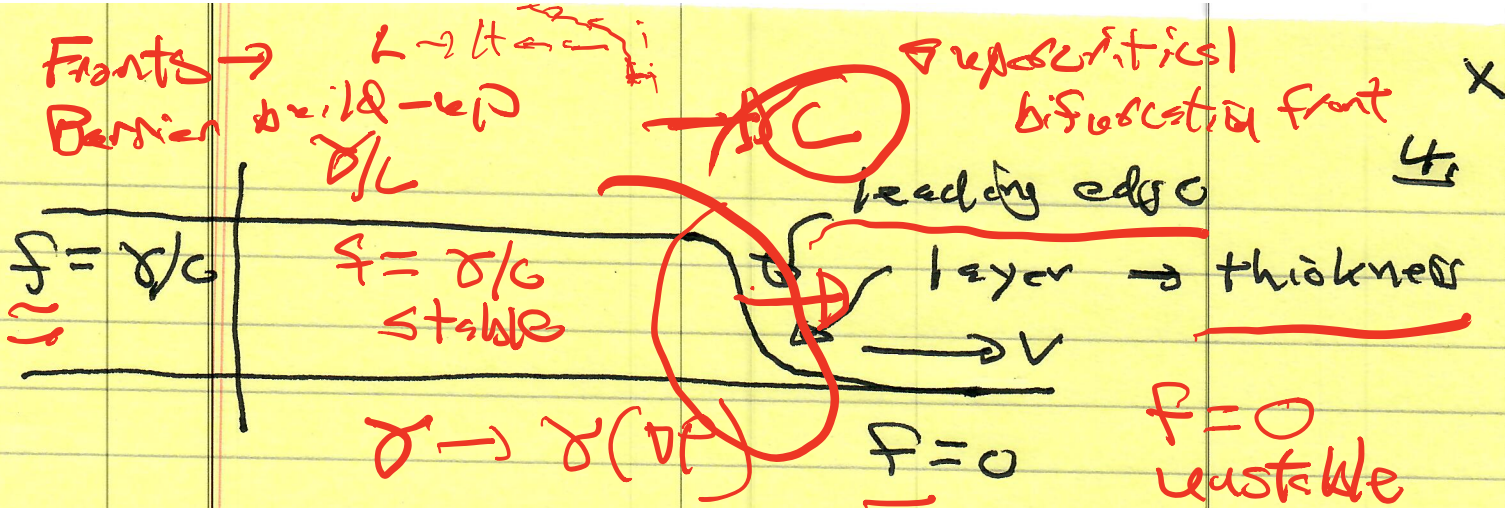 Fronts → L → H
Barrier build-up
γ/L
C
supercritical
bifurcation front
X
4.
leading edge
f = γ/c
f = γ/c
stable
layer → thickness
→ V
γ → γ(∇P)
f = 0
f = 0
unstable